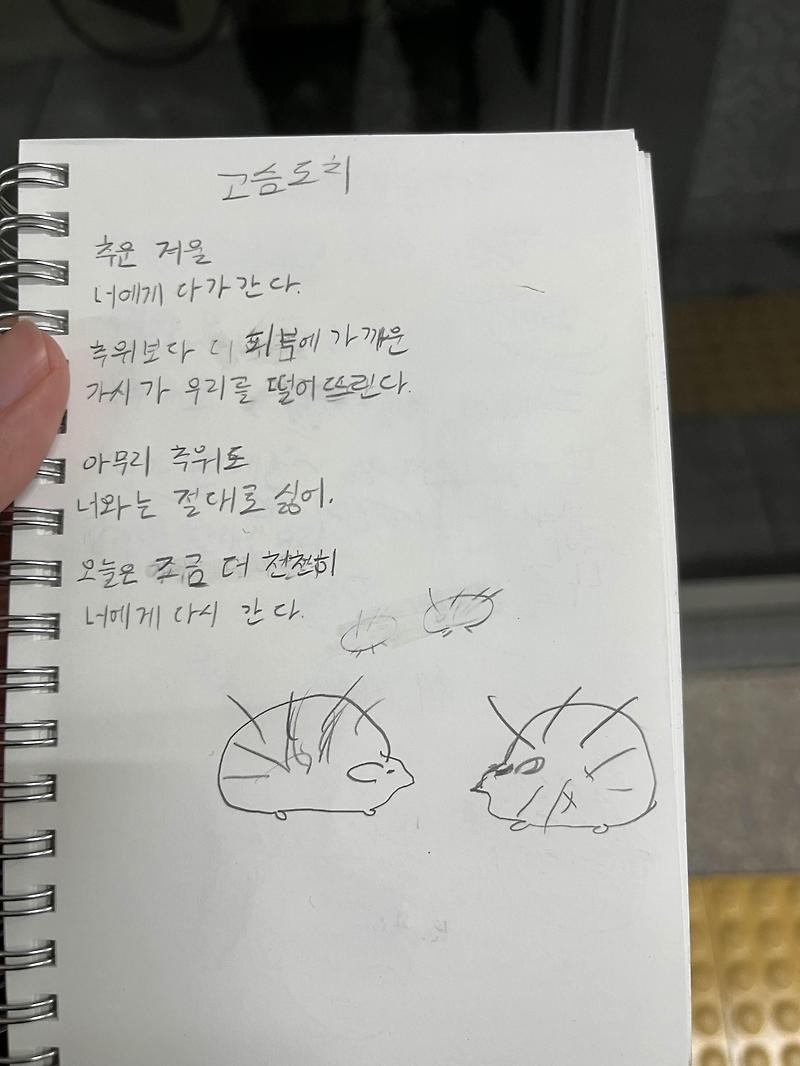 고슴도치
추운 겨울
너에게 다가간다.
추위보다 더 피부에 가까운
가시가 우리를 떨어뜨린다.
아무리 추워도
너와는 절대로 싫어.
오늘은 조금 더 천천히
너에게 다시 간다.